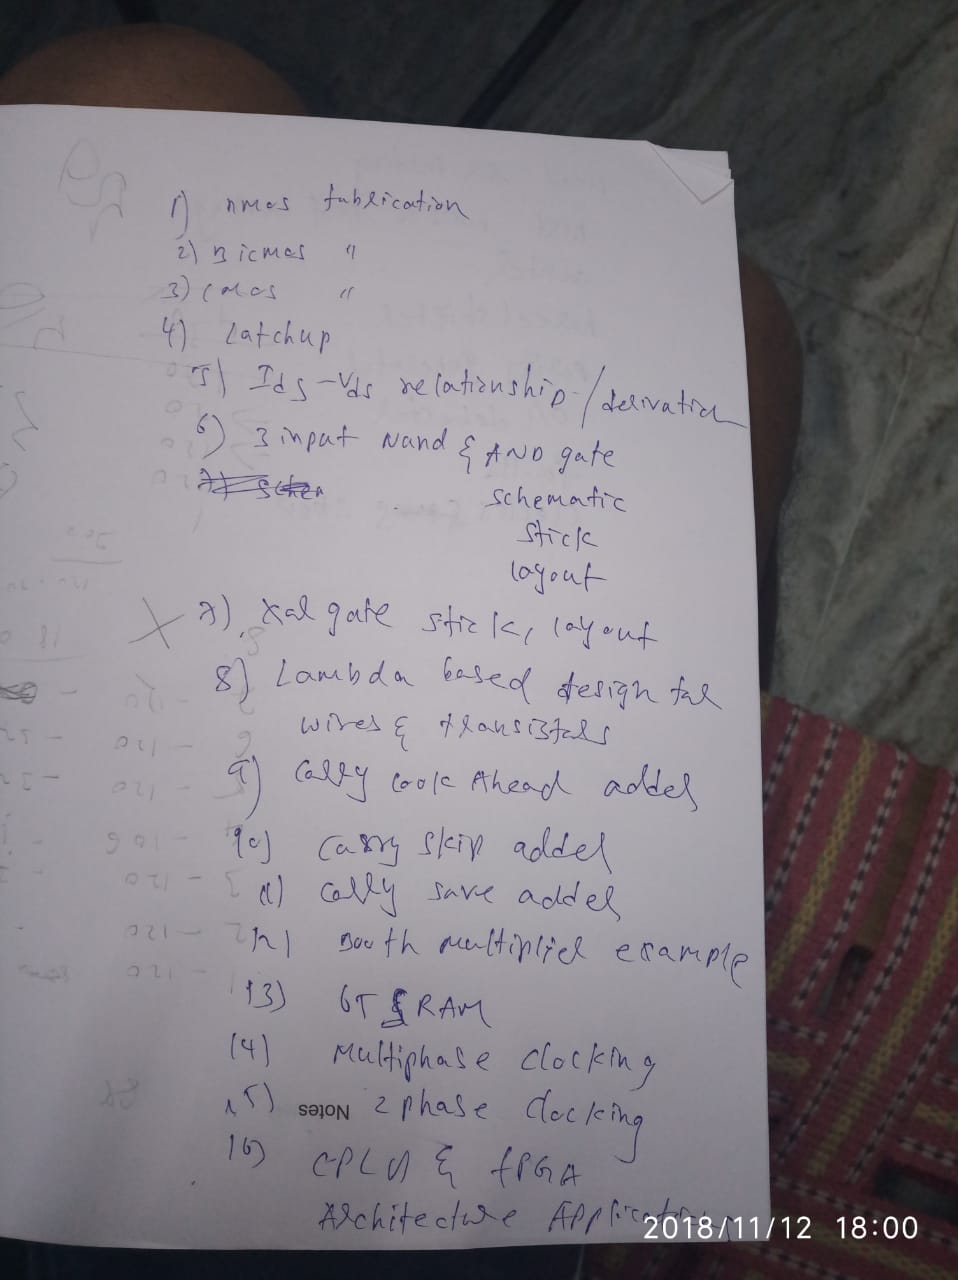 1) nmos fabrication
2) Bicmos "
3) Cmos "
4) Latchup
5) Ids-Vds relationship/derivation
6) 3 input Nand & AND gate
schematic
stick
layout
7) Xor gate stick, layout
8) Lambda based design for
wires & transistors
9) Carry Look Ahead adder
10) Carry skip adder
11) Carry save adder
12) Booth multiplier example
13) 6T SRAM
14) Multiphase clocking
15) 2 phase clocking
Notes
16) CPLD & FPGA
Architecture Applications
2018/11/12 18:00